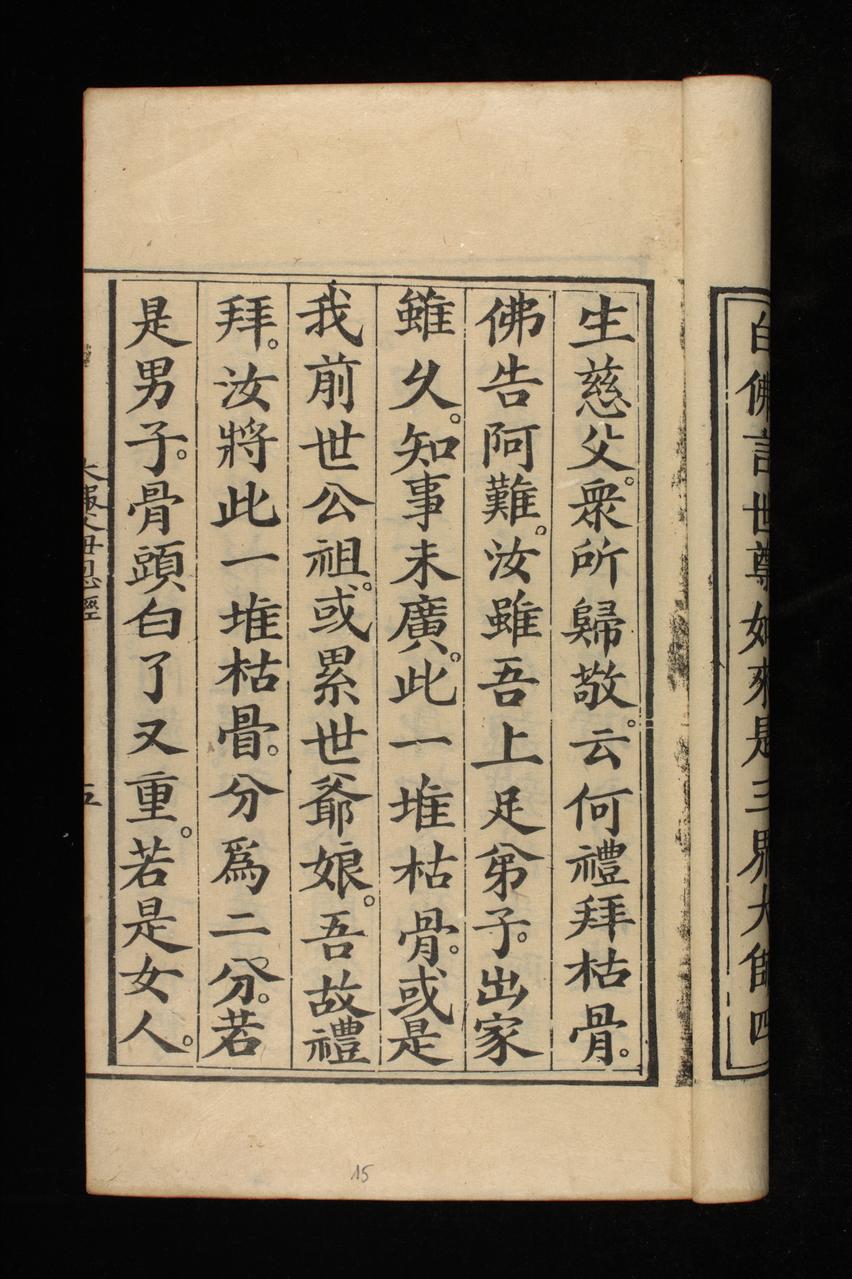 白佛言世尊如來是三界大師四
生慈父。衆所歸敬。云何禮拜枯骨。
佛告阿難。汝雖吾上足弟子。出家
雖久。知事未廣。此一堆枯骨。或是
我前世公祖。或累世爺娘。吾故禮
拜。汝將此一堆枯骨。分爲二分。若
是男子。骨頭白了又重。若是女人。
大報父母恩經
五
15